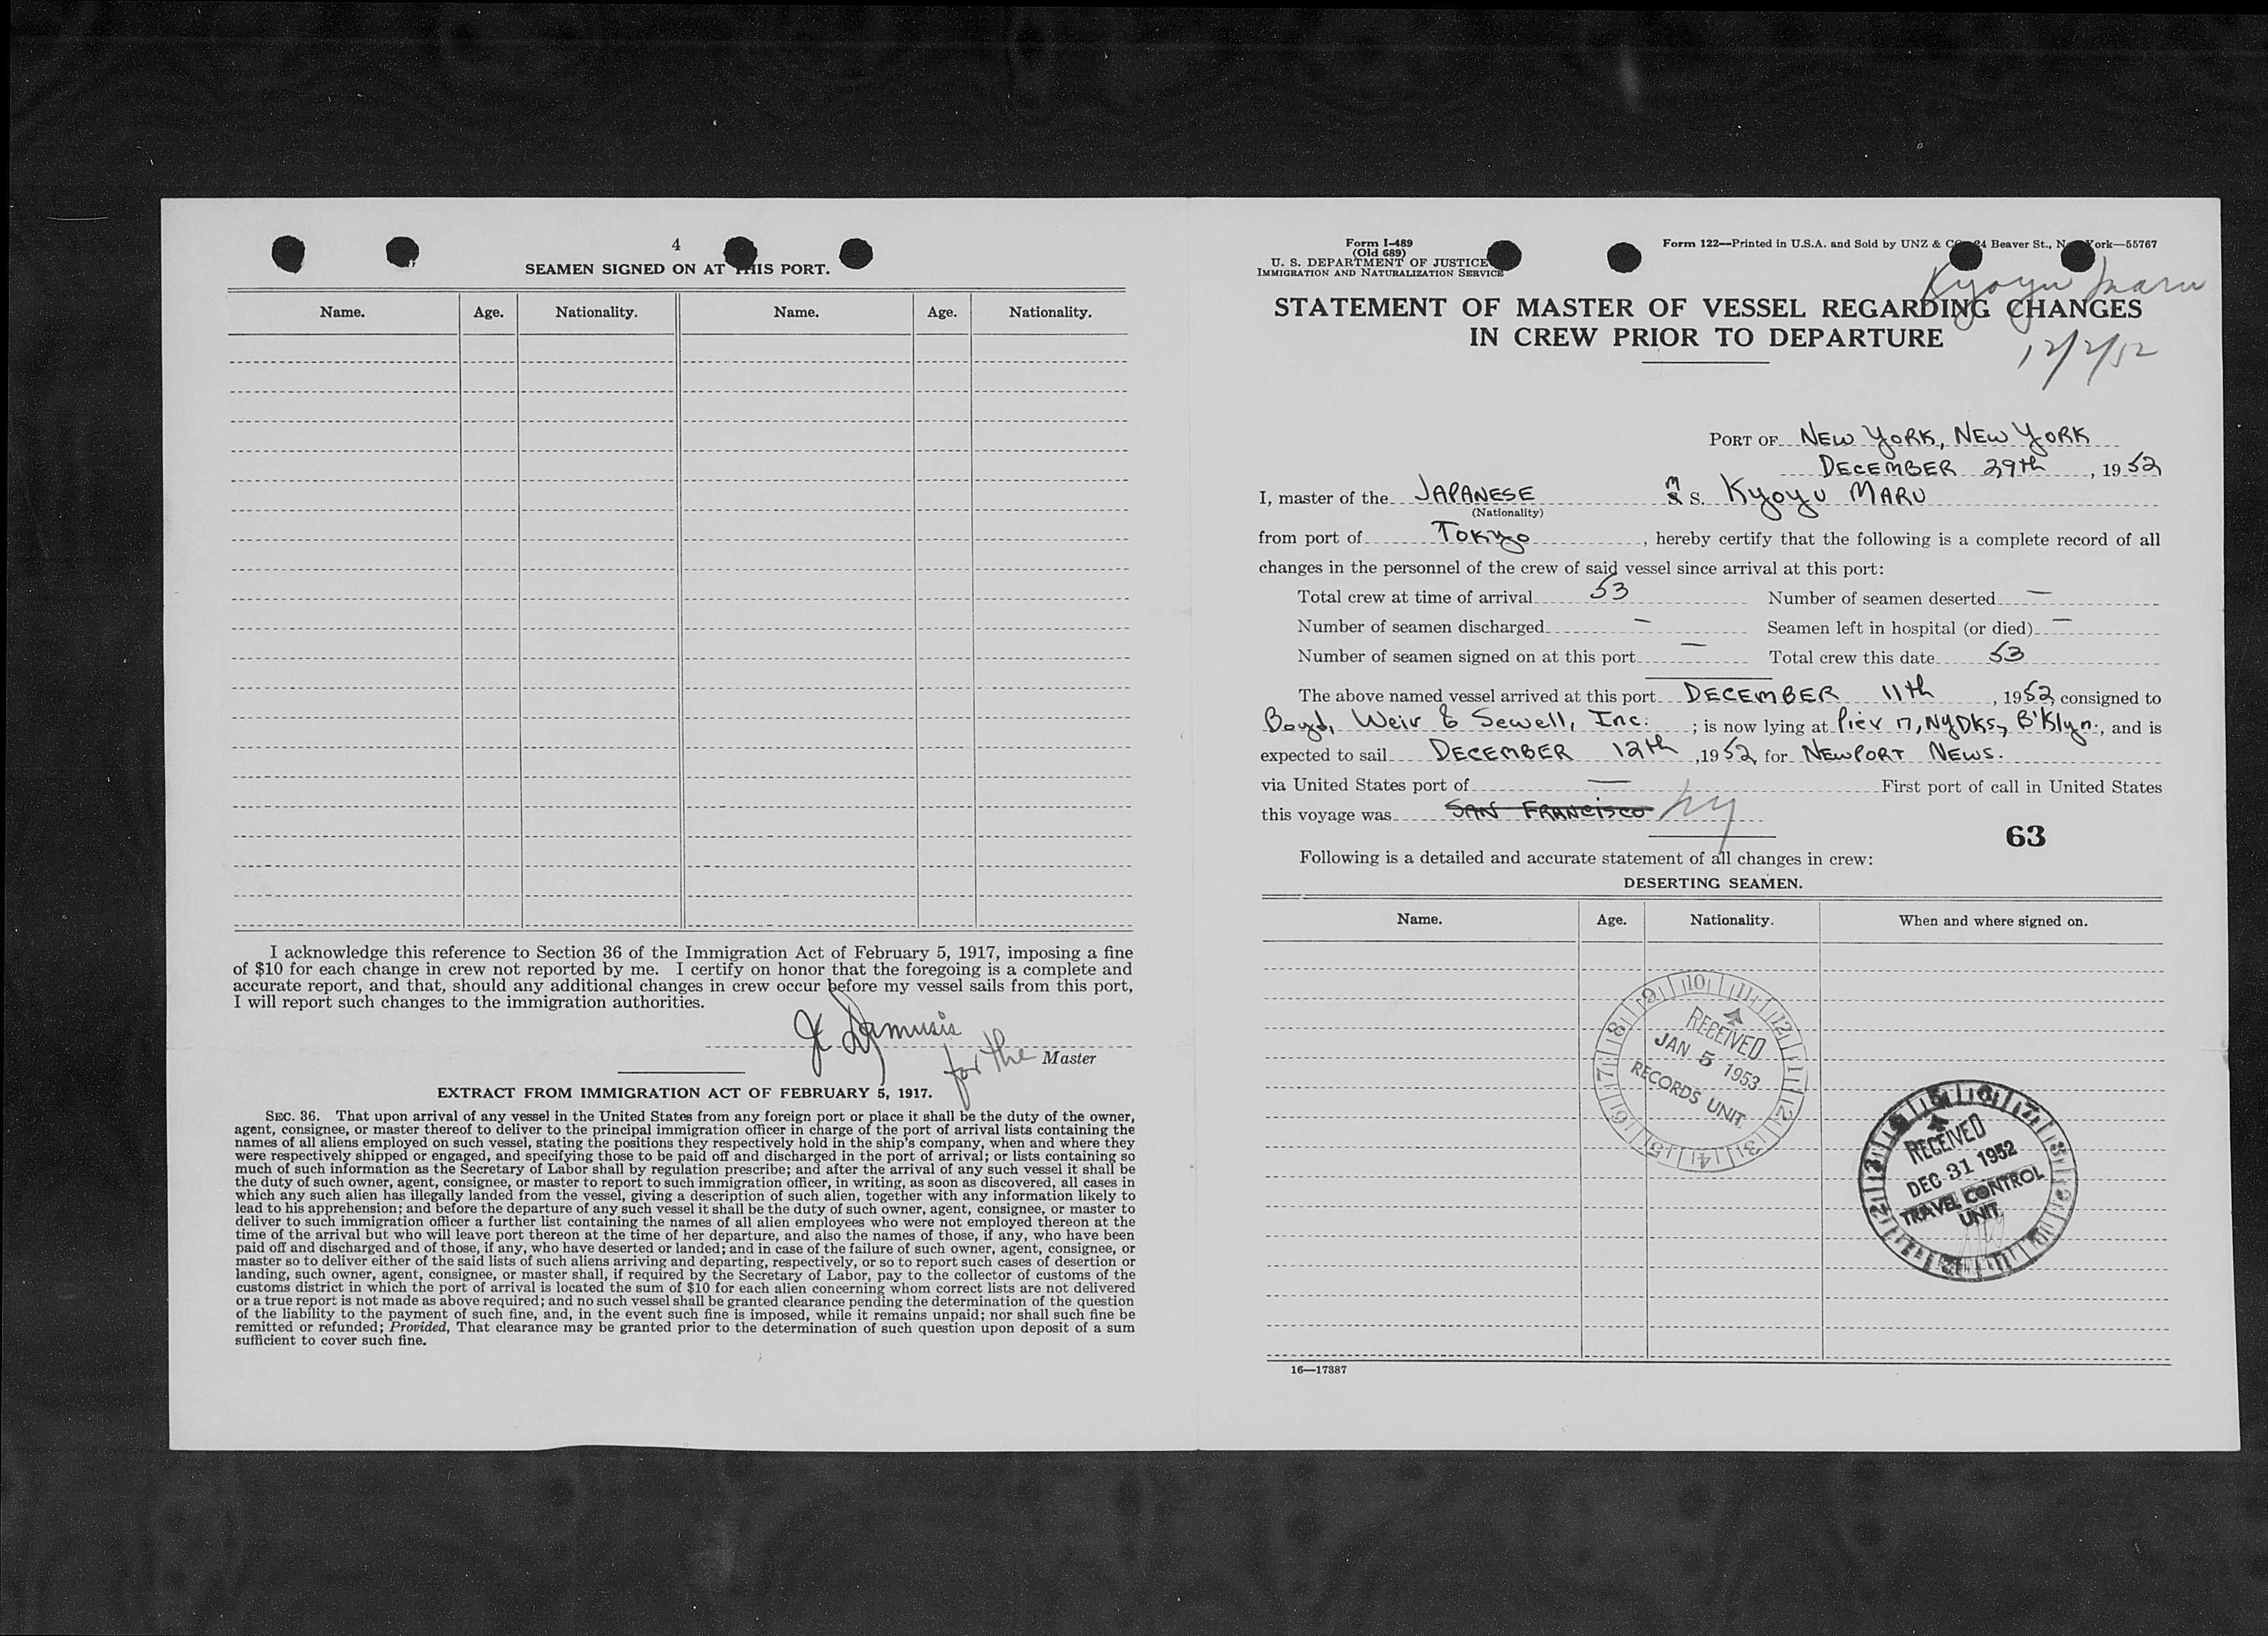 4
SEAMEN SIGNED ON AT THIS PORT.
Name. Age. Nationality. Name. Age. Nationality.
I acknowledge this reference to Section 36 of the Immigration Act of February 5, 1917, imposing a fine
of $10 for each change in crew not reported by me. I certify on honor that the foregoing is a complete and
accurate report, and that, should any additional changes in crew occur before my vessel sails from this port,
I will report such changes to the immigration authorities.
for the Master
EXTRACT FROM IMMIGRATION ACT OF FEBRUARY 5, 1917.
SEC. 36. That upon arrival of any vessel in the United States from any foreign port or place it shall be the duty of the owner,
agent, consignee, or master thereof to deliver to the principal immigration officer in charge of the port of arrival lists containing the
names of all aliens employed on such vessel, stating the positions they respectively hold in the ship's company, when and where they
were respectively shipped or engaged, and specifying those to be paid off and discharged in the port of arrival; or lists containing so
much of such information as the Secretary of Labor shall by regulation prescribe; and after the arrival of any such vessel it shall be
the duty of such owner, agent, consignee, or master to report to such immigration officer, in writing, as soon as discovered, all cases in
which any such alien has illegally landed from the vessel, giving a description of such alien, together with any information likely to
lead to his apprehension; and before the departure of any such vessel it shall be the duty of such owner, agent, consignee, or master to
deliver to such immigration officer a further list containing the names of all alien employees who were not employed thereon at the
time of the arrival but who will leave port thereon at the time of her departure, and also the names of those, if any, who have been
paid off and discharged and of those, if any, who have deserted or landed; and in case of the failure of such owner, agent, consignee, or
master so to deliver either of the said lists of such aliens arriving and departing, respectively, or so to report such cases of desertion or
landing, such owner, agent, consignee, or master shall, if required by the Secretary of Labor, pay to the collector of customs of the
customs district in which the port of arrival is located the sum of $10 for each alien concerning whom correct lists are not delivered
or a true report is not made as above required; and no such vessel shall be granted clearance pending the determination of the question
of the liability to the payment of such fine, and, in the event such fine is imposed, while it remains unpaid; nor shall such fine be
remitted or refunded; Provided, That clearance may be granted prior to the determination of such question upon deposit of a sum
sufficient to cover such fine.
Form I-489
(Old 689)
U. S. DEPARTMENT OF JUSTICE
IMMIGRATION AND NATURALIZATION SERVICE
Form 122—Printed in U.S.A. and Sold by UNZ & CO., 24 Beaver St., New York—55767
Kyoyu Maru
STATEMENT OF MASTER OF VESSEL REGARDING CHANGES
IN CREW PRIOR TO DEPARTURE
12/2/52
PORT OF NEW YORK, NEW YORK
DECEMBER 29th, 1952
I, master of the JAPANESE M S. Kyoyu MARU
(Nationality)
from port of Tokyo, hereby certify that the following is a complete record of all
changes in the personnel of the crew of said vessel since arrival at this port:
Total crew at time of arrival 53 Number of seamen deserted —
Number of seamen discharged — Seamen left in hospital (or died) —
Number of seamen signed on at this port — Total crew this date 53
The above named vessel arrived at this port DECEMBER 11th, 1952, consigned to
Boyd, Weir & Sewell, Inc. ; is now lying at Pier 17, NYDKS, B'Klyn., and is
expected to sail DECEMBER 12th, 1952, for NEWPORT NEWS.
via United States port of — First port of call in United States
this voyage was SAN FRANCISCO ny
63
Following is a detailed and accurate statement of all changes in crew:
DESERTING SEAMEN.
Name. Age. Nationality. When and where signed on.
9 10 11 12 1 2 3 4 5 6 7 8
RECEIVED
JAN 5 1953
RECORDS UNIT.
RECEIVED
DEC 31 1952
TRAVEL CONTROL
UNIT.
16—17387